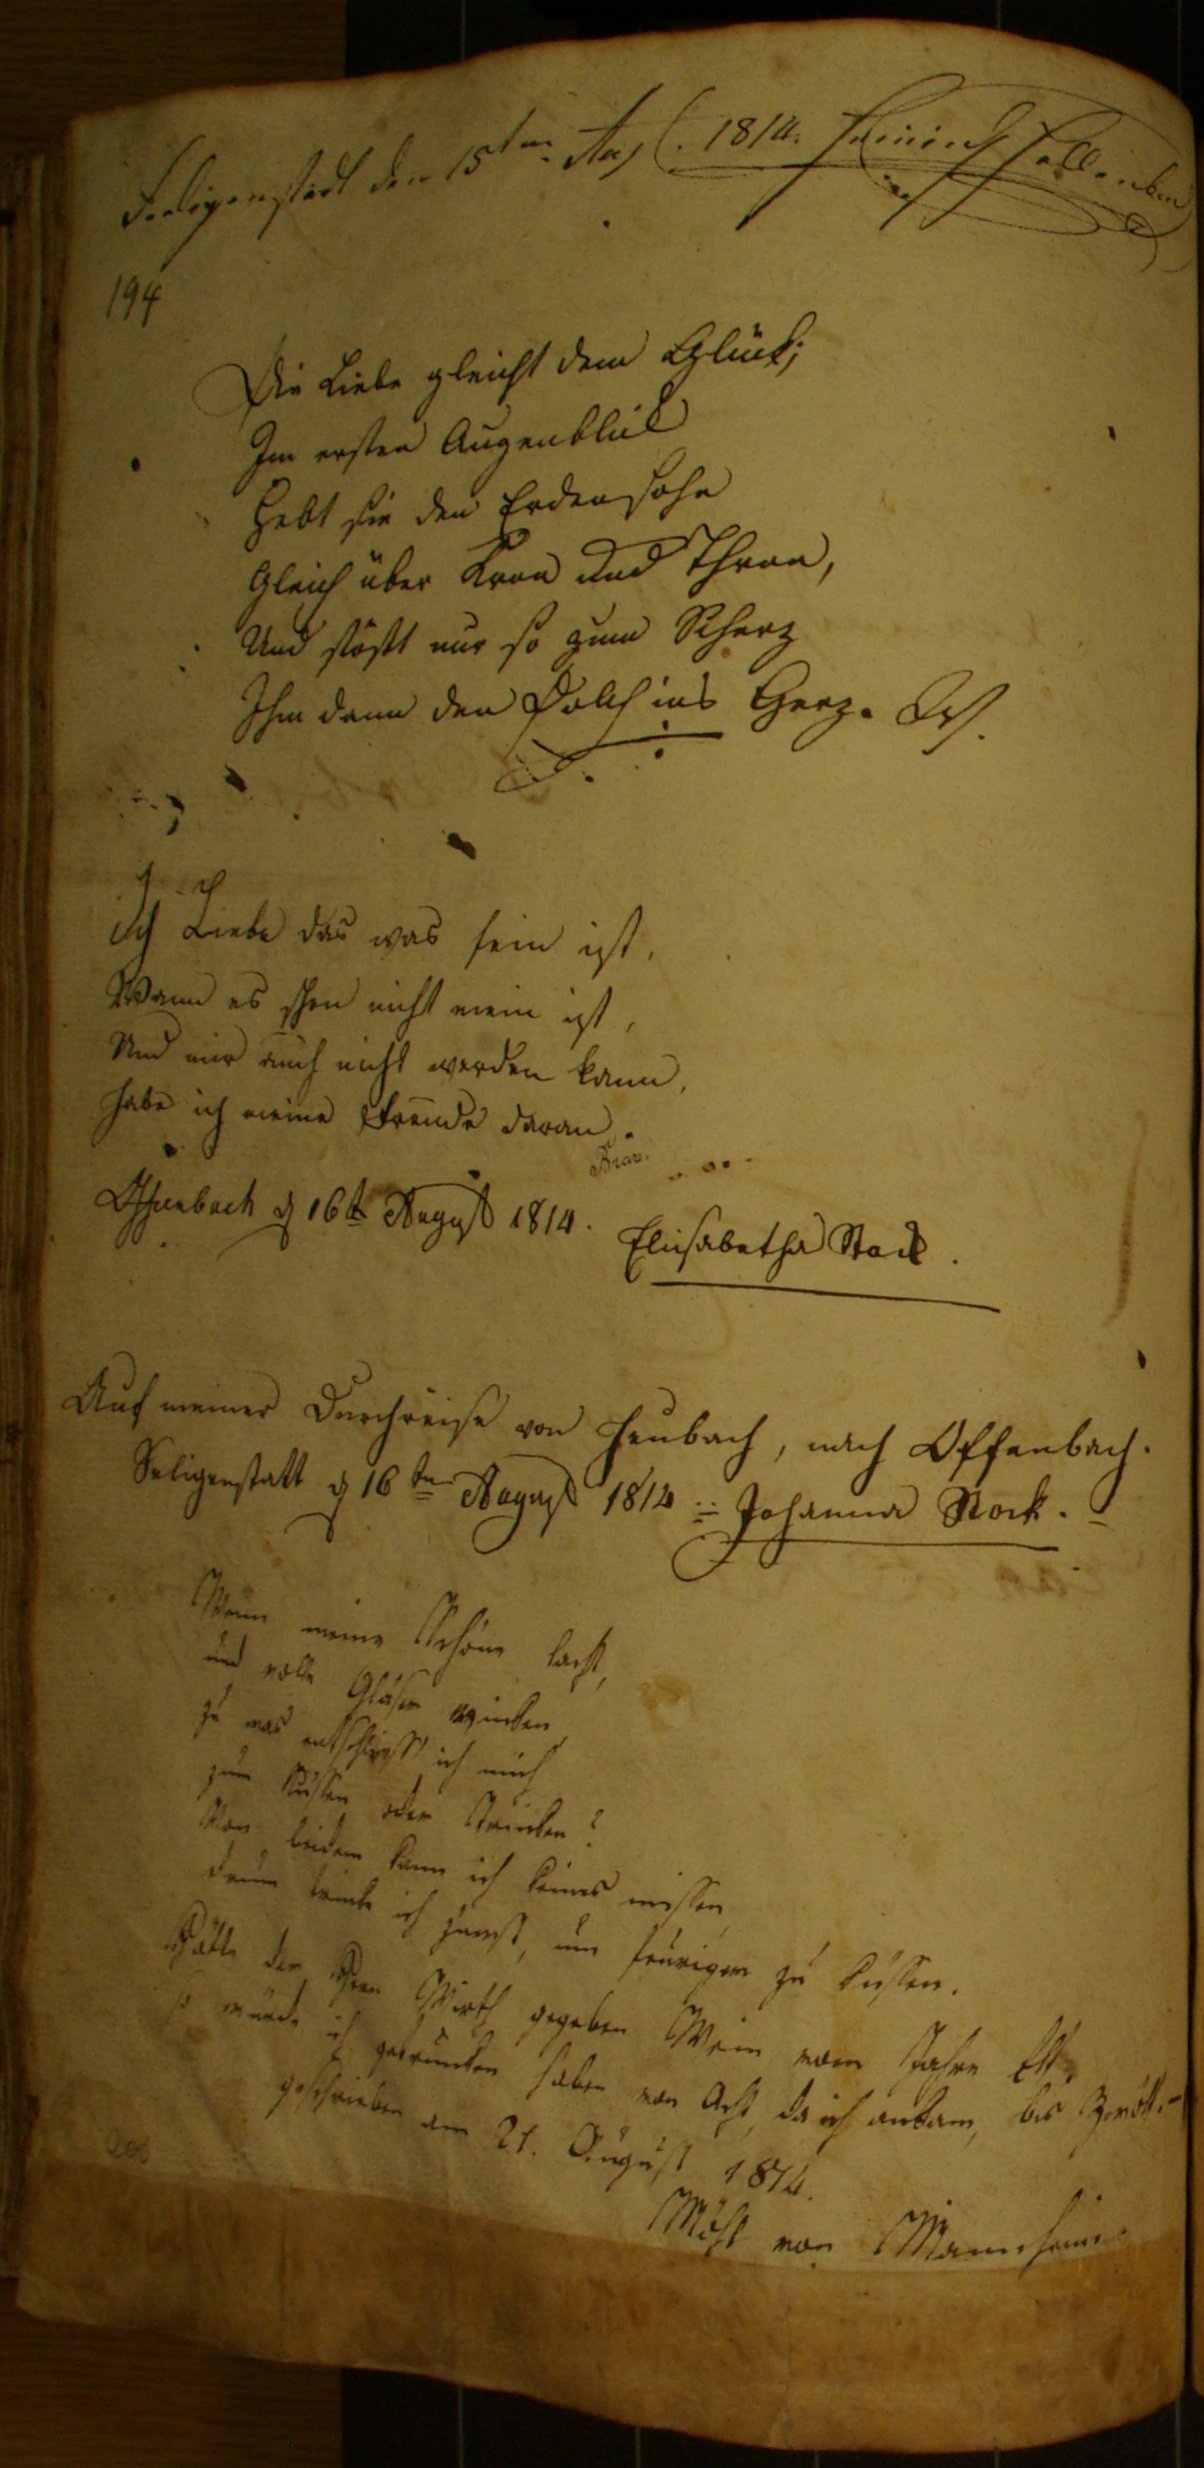 Seligenstadt den 15ten Aug. 1814. Heinrich
194
Die Liebe gleicht dem Glück;
Im ersten Augenblick
Hebt sie den Erdensohn
Gleich über Kron und Thron,
Und stößt nur so zum Scherz
Ihm dann den Dolch ins Herz.
ich Liebe das was fein ist,
Wann es schon nicht mein ist,
Und mir auch nicht werden kann,
habe ich meine Freude daran.
Brav.
Offenbach d 16te August 1814.
Elisabetha Stock.
Auf meiner Durchreise von Heubach, nach Offenbach.
Seligenstatt d 16ten August 1814 Johanna Stock.
Wenn meine Schöne lacht,
und volle Gläser winken
zu was entschließ ich mich
zum Küssen oder Trinken?
Von beidem kann ich keines missen
drum trinke ich zuerst, um feuriger zu küssen.
Hätte der Herr Wirth gegeben Wein vom Jahre Elf,
so würde ich getrunken haben von Acht, da ich ankam, bis Zwölf.-
geschrieben am 21. August 1814.
von Mannheim.